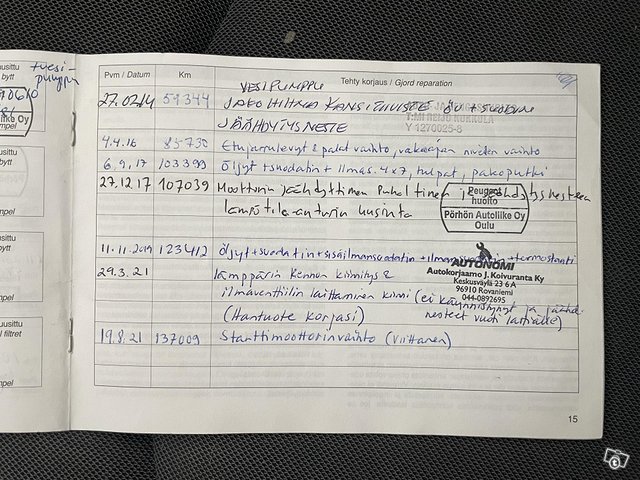 +vesi-
pumppu
Pvm / Datum Km Tehty korjaus / Gjord reparation
VESIPUMPPU
27.02.14 59344 JAKOHIHNA KANSITIIVISTE ÖLJY + SUODATIN
T:MI REIJO KOKKOLA
JÄÄHDYTYSNESTE
Y 1270025-8
4.4.16 85730 Etujarrulevyt & palat vaihto, vakaajan nivelen vaihto
6.9.17 103399 Öljyt + suodatin + ilmas. 4x7, tulpat, pakoputki
27.12.17 107039 Moottorin jäähdyttimen puhaltimen ja jäähdytysnesteen
lämpötila-anturin uusinta
Peugeot
huolto
Pörhön Autoliike Oy
Oulu
11.11.2019 123412 Öljyt + suodatin + sisäilmansuodatin + termostaatti
AUTONOMI
Autokorjaamo J. Koivuranta Ky
Keskusväylä 23 6 A
96910 Rovaniemi
044-0892695
29.3.21 lämppärin kennon kiinnitys &
ilmaventtiilin laittaminen kiinni (ei käynnistynyt ja jäähd-
nesteet vuoti lattialle)
(Hantuote korjasi)
19.8.21 137009 Starttimoottorin vaihto (Viittanen)
15
liike Oy
mpel
uusittu
bytt
mpel
uusittu
bytt
mpel
uusittu
l filtret
mpel